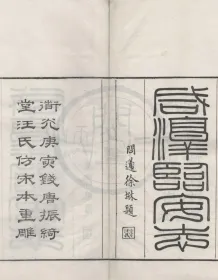 咸淳臨安志
閩邊徐楙題
道光庚寅錢唐振綺
堂汪氏仿宋本重雕